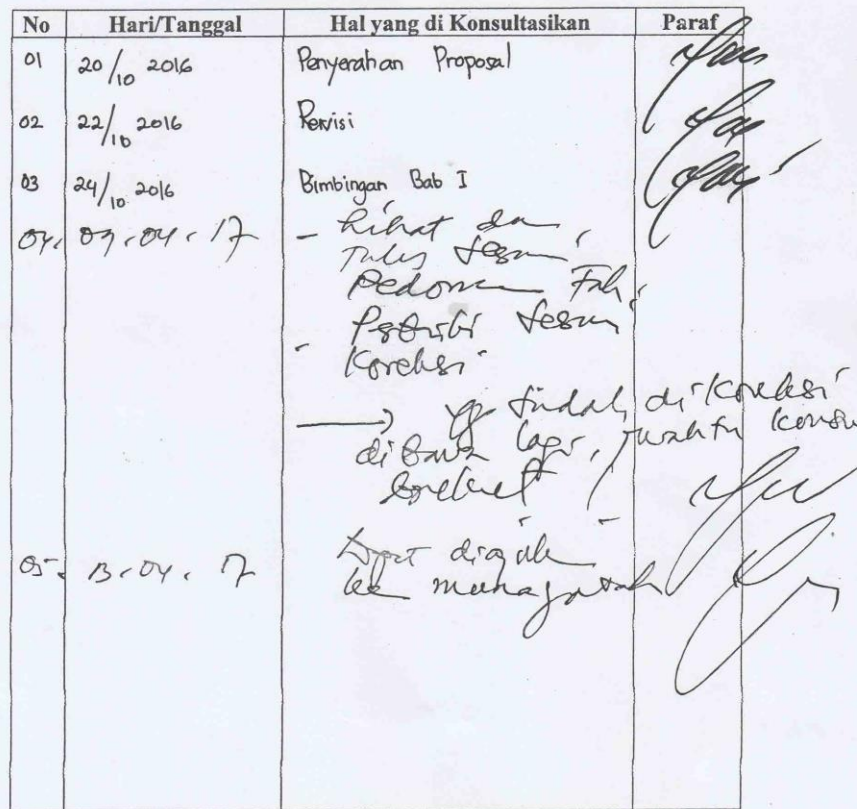 No Hari/Tanggal Hal yang di Konsultasikan Paraf
01 20/10 2016 Penyerahan Proposal
02 22/10 2016 Revisi
03 24/10 2016 Bimbingan Bab I
04. 07.04.17 - Lihat dan
Tulis sesuai
Pedoman Fak.
- Perbaiki sesuai
Koreksi
→ yg sudah dikoreksi
dibawa lagi, waktu konsul
berikut
05. 13.04.17 Dapat diajukan
ke munaqasah